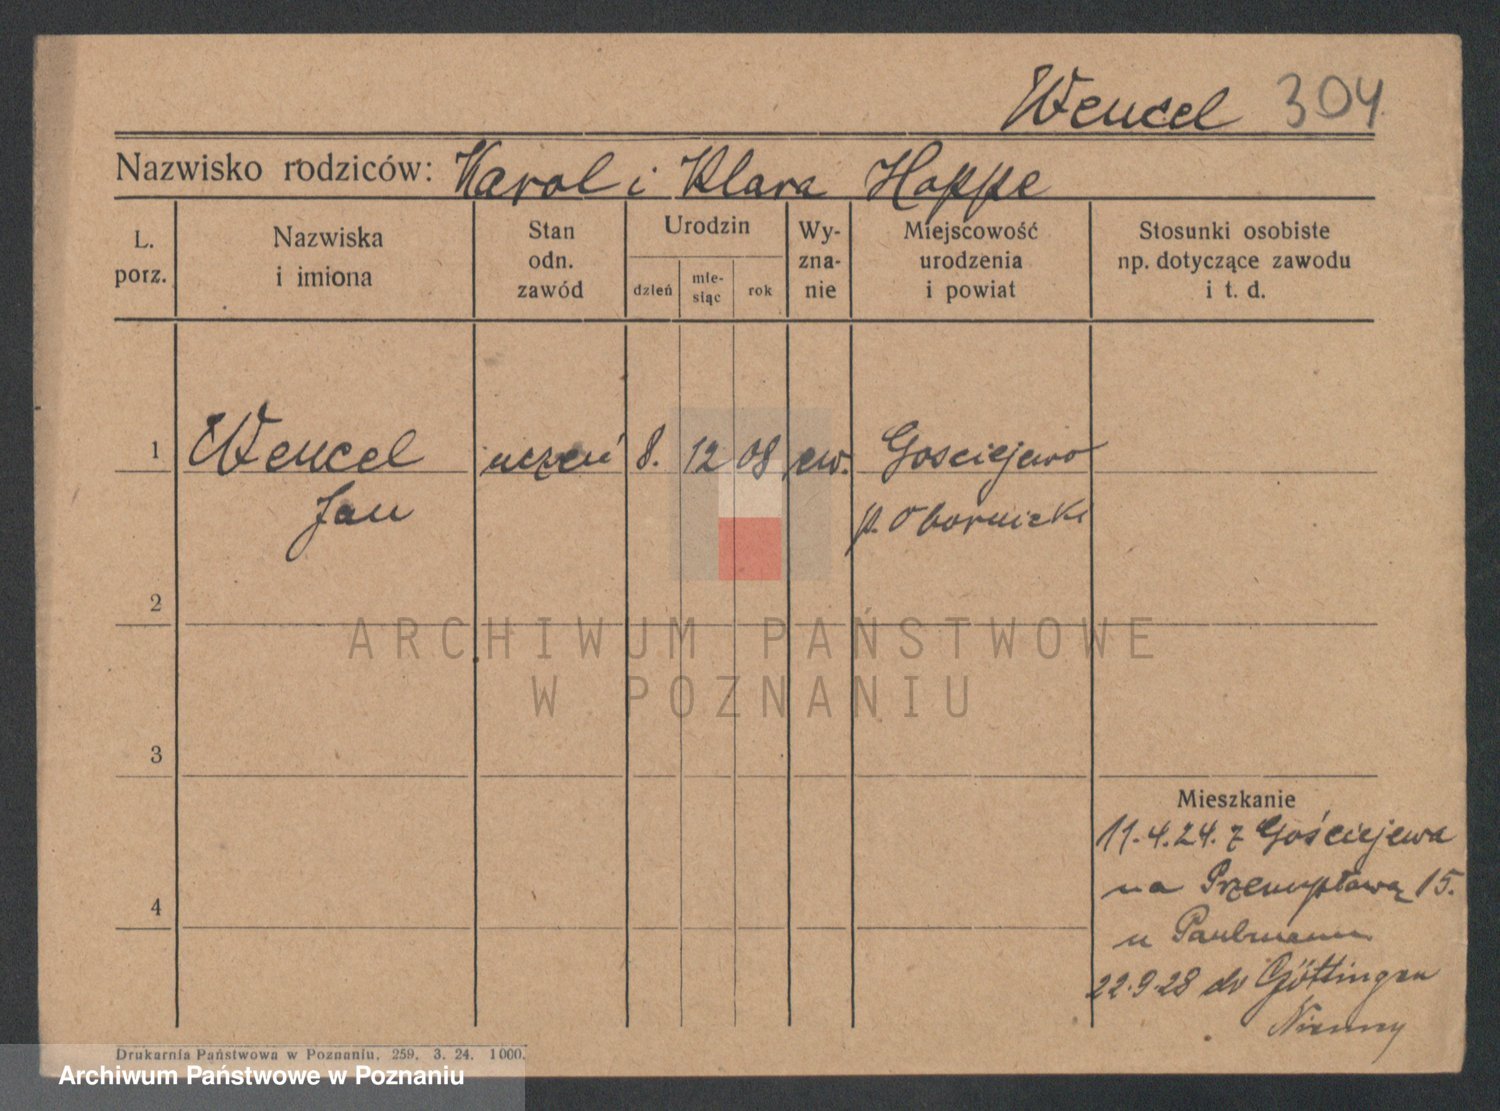 Wencel 304
Nazwisko rodziców: Karol i Klara Hoppe
L. porz.
Nazwiska i imiona
Stan odn. zawód
Urodzin
dzień
mie-siąc
rok
Wy-zna-nie
Miejscowość urodzenia i powiat
Stosunki osobiste np. dotyczące zawodu i t. d.
1 Wencel uczeń 8. 12 08 ew. Gosciejewo
Jan p. Obornicki
2
ARCHIWUM PAŃSTWOWE
W POZNANIU
3
Mieszkanie
11.4.24. z Gościejewa
na Przemysłową 15.
4
u Paulmann
22.9.28 do Göttingen
Niemcy
Drukarnia Państwowa w Poznaniu, 259, 3. 24. 1000.
Archiwum Państwowe w Poznaniu